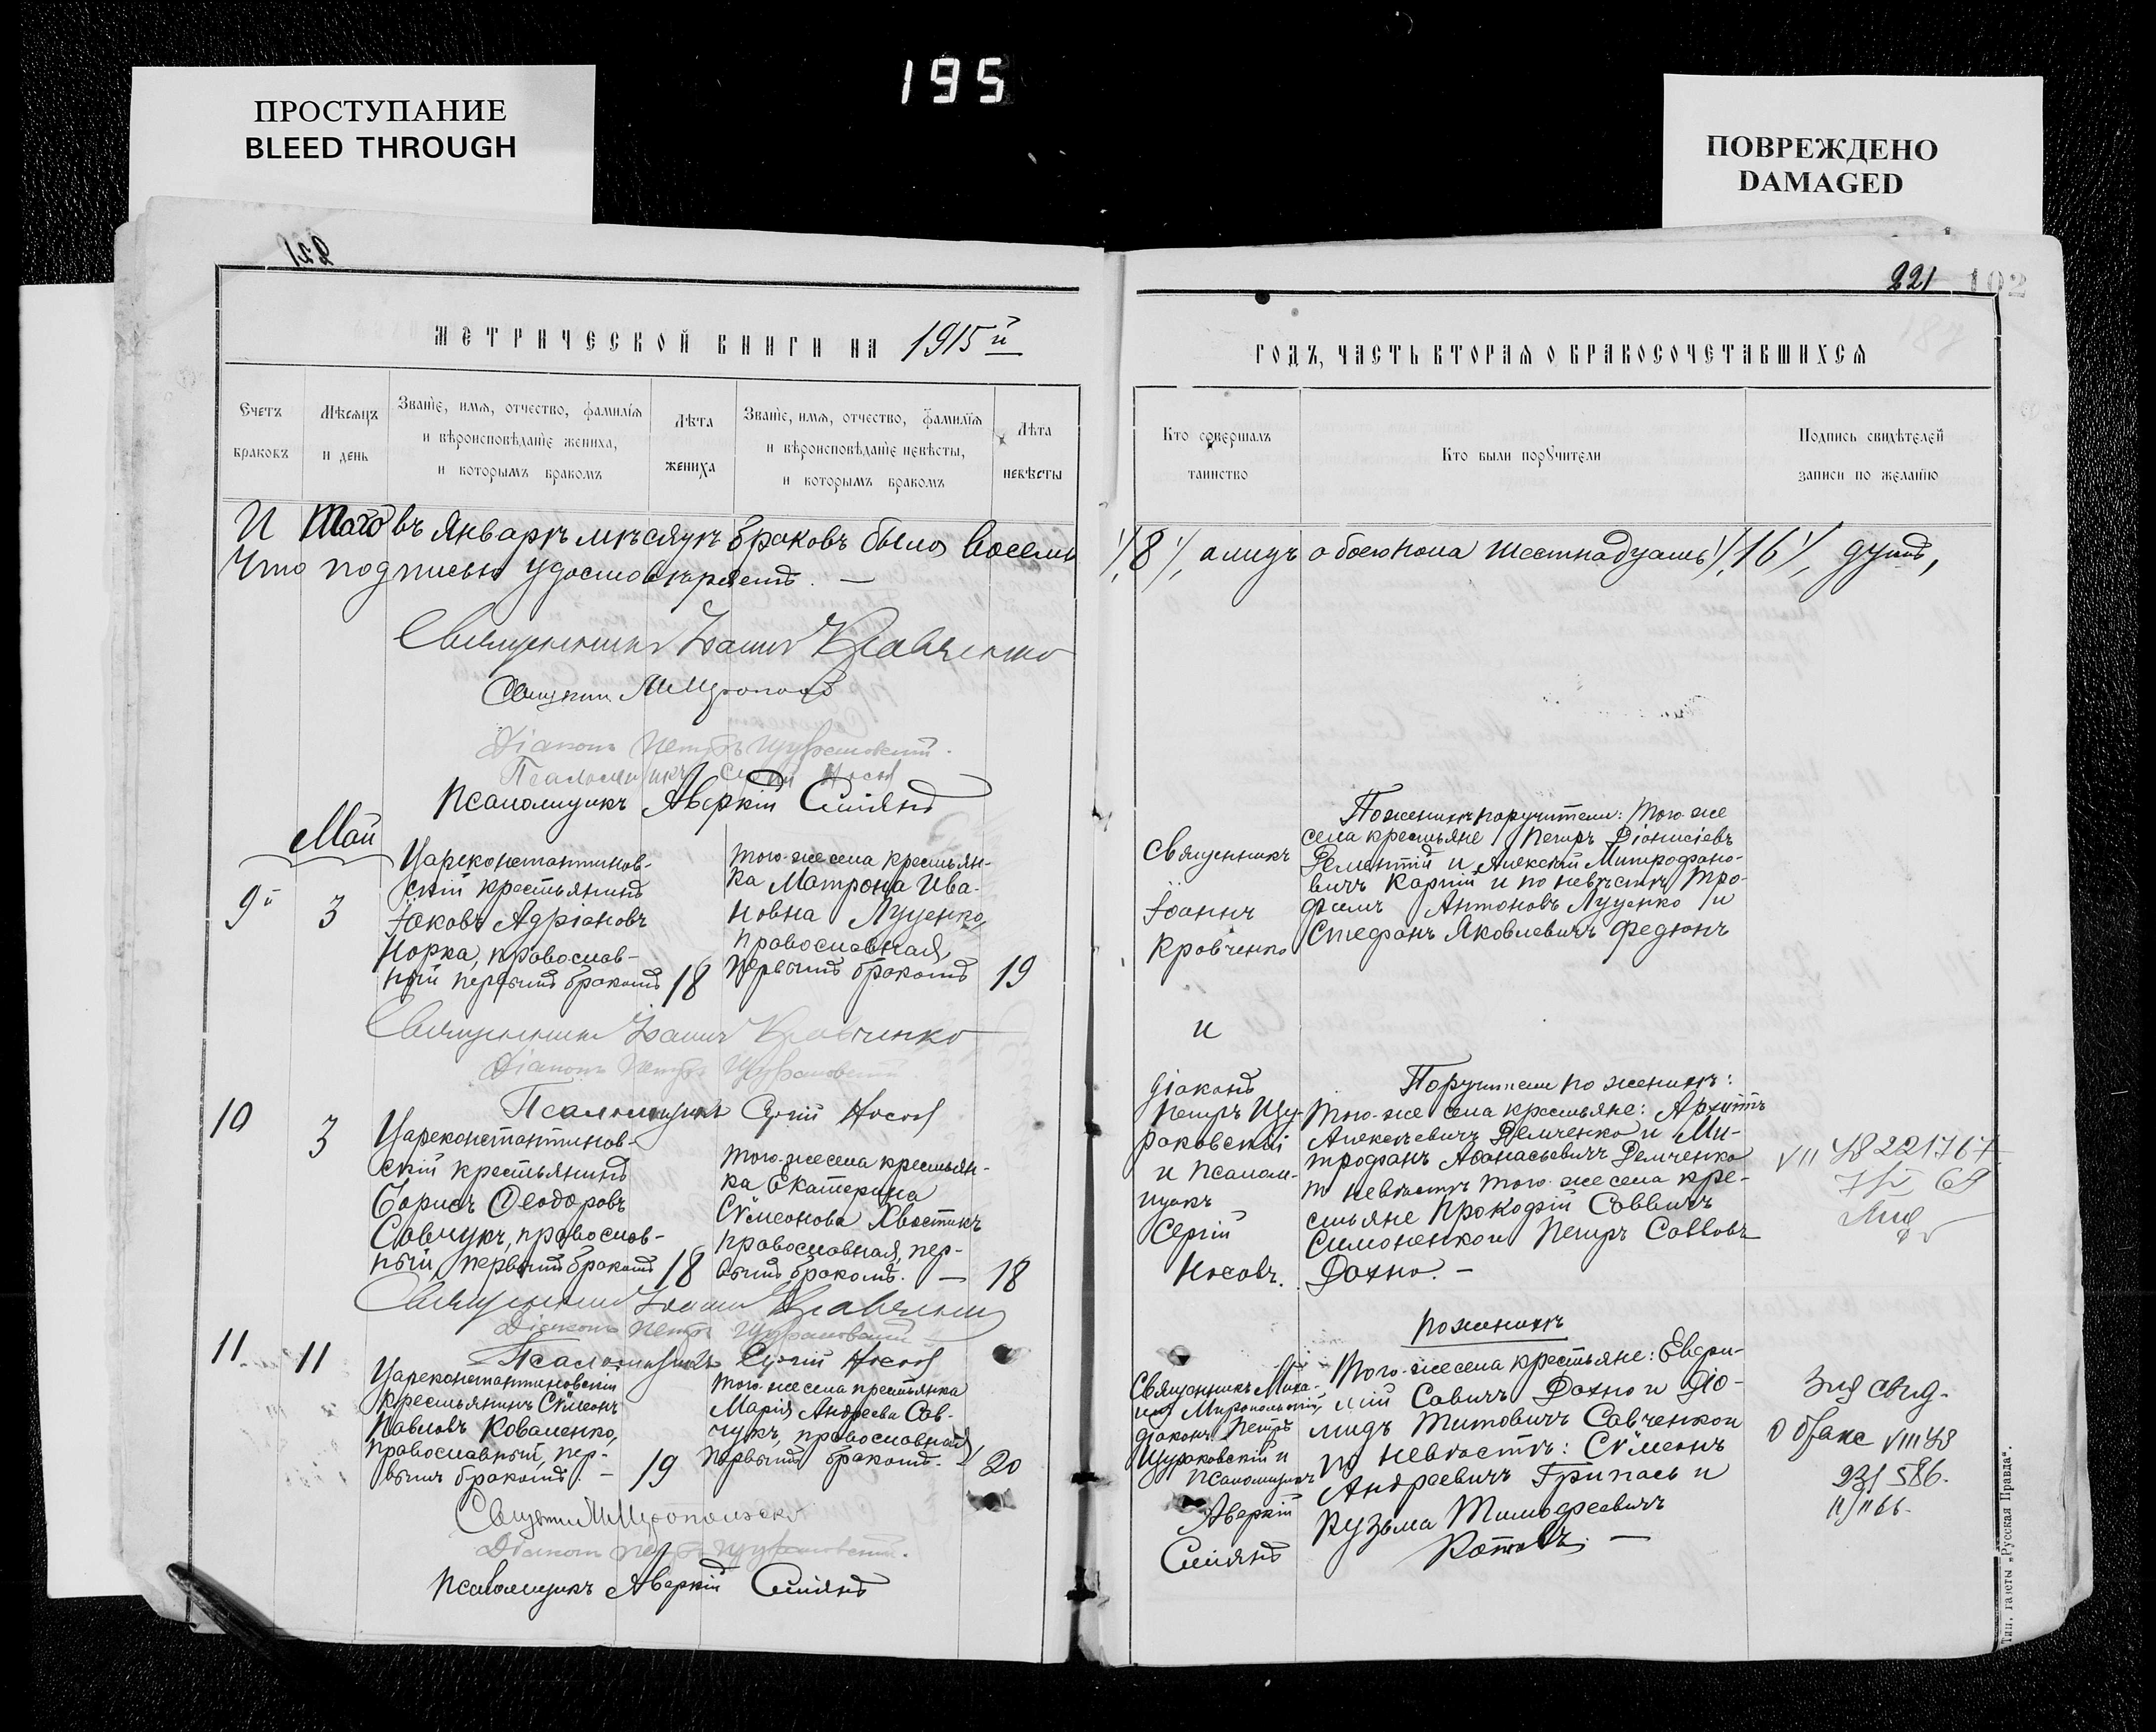 195
ПРОСТУПАНИЕ
BLEED THROUGH
ПОВРЕЖДЕНО
DAMAGED
221
102
МЕТРИЧЕСКОЙ КНИГИ НА 1915й
ГОДЪ, ЧАСТЬ ВТОРАЯ О БРАКОСОЧЕТАВШИХСЯ
Счетъ браковъ
Мѣсяцъ и день
Званіе, имя, отчество, фамилія
и вѣроисповѣданіе жениха,
и которымъ бракомъ
Лѣта жениха
Званіе, имя, отчество, фамилія
и вѣроисповѣданіе невѣсты,
и которымъ бракомъ
Лѣта невѣсты
Кто совершалъ
таинство
Кто были поручители
Подпись свидѣтелей
записи по желанію
Итого въ Январѣ мѣсяцѣ браковъ было восемь /8/, а лицъ обоего пола шестнадцать /16/, душъ,
Что подписью удостовѣряемъ. —
Священникъ Іоаннъ Кравченко
Діаконъ Петръ Щураковскій.
Псаломщикъ Сергій Носовъ
Псаломщикъ Аверкій Сіянъ
Май
9й
3
Цареконстантинов-
скій крестьянинъ
Іаковъ Адріановъ
Норка, православ-
ный первымъ бракомъ
18
того-же села крестьян-
ка Матрона Ива-
новна Луценко,
православная,
первымъ бракомъ
19
Священникъ
Іоаннъ
Кравченко
и
діаконъ
Петръ Щу-
раковскій
и Псалом-
щикъ
Сергій
Носовъ.
По женихѣ поручители: того-же
села крестьяне Петръ Діонисіевъ
Дементій и Алексѣй Митрофано-
вичъ Каргій и по невѣстѣ Тро-
фимъ Антоновъ Луценко и
Стефанъ Яковлевичъ Федюнъ
Священникъ Іоаннъ Кравченко
Діаконъ Петръ Щураковскій
Псаломщикъ Сергій Носовъ
10
3
Цареконстантинов-
скій крестьянинъ
Борисъ Ѳеодоровъ
Савчукъ, православ-
ный, первымъ бракомъ
18
того-же села крестьян-
ка Екатерина
Сѵмеонова Хвостикъ
православная, пер-
вымъ бракомъ. —
18
Поручители по женихѣ:
того-же села крестьяне:
Алексѣевичъ Демченко и Ми-
трофанъ Аѳанасьевичъ Демченко
и невѣстѣ того-же села кре-
стьяне Прокофій Саввичъ
Симоненко и Петръ Савовъ
Дахно. —
Священникъ Іоаннъ Кравченко
Діаконъ Петръ Щураковскій
Псаломщикъ Сергій Носовъ
11
11
Цареконстантиновскій
крестьянинъ Сѵмеонъ
Павловъ Коваленко,
православный, пер-
вымъ бракомъ. —
19
того-же села крестьянка
Марія Андреева Сав-
чукъ, православная,
первымъ бракомъ. —
20
Священникъ Миха-
илъ Миропольскій,
діаконъ Петръ
Щураковскій и
псаломщикъ
Аверкій
Сіянъ
по женихѣ
того-же села крестьяне:
Савичъ Дахно и Діо-
мидъ Титовичъ Савченко и
по невѣстѣ: Сѵмеонъ
Андреевичъ Грипась и
Кузьма Тимофеевичъ
о браке
Діаконъ Петръ Щураковскій.
Псаломщикъ Аверкій Сіянъ
Тип. газеты „Русская Правда“.